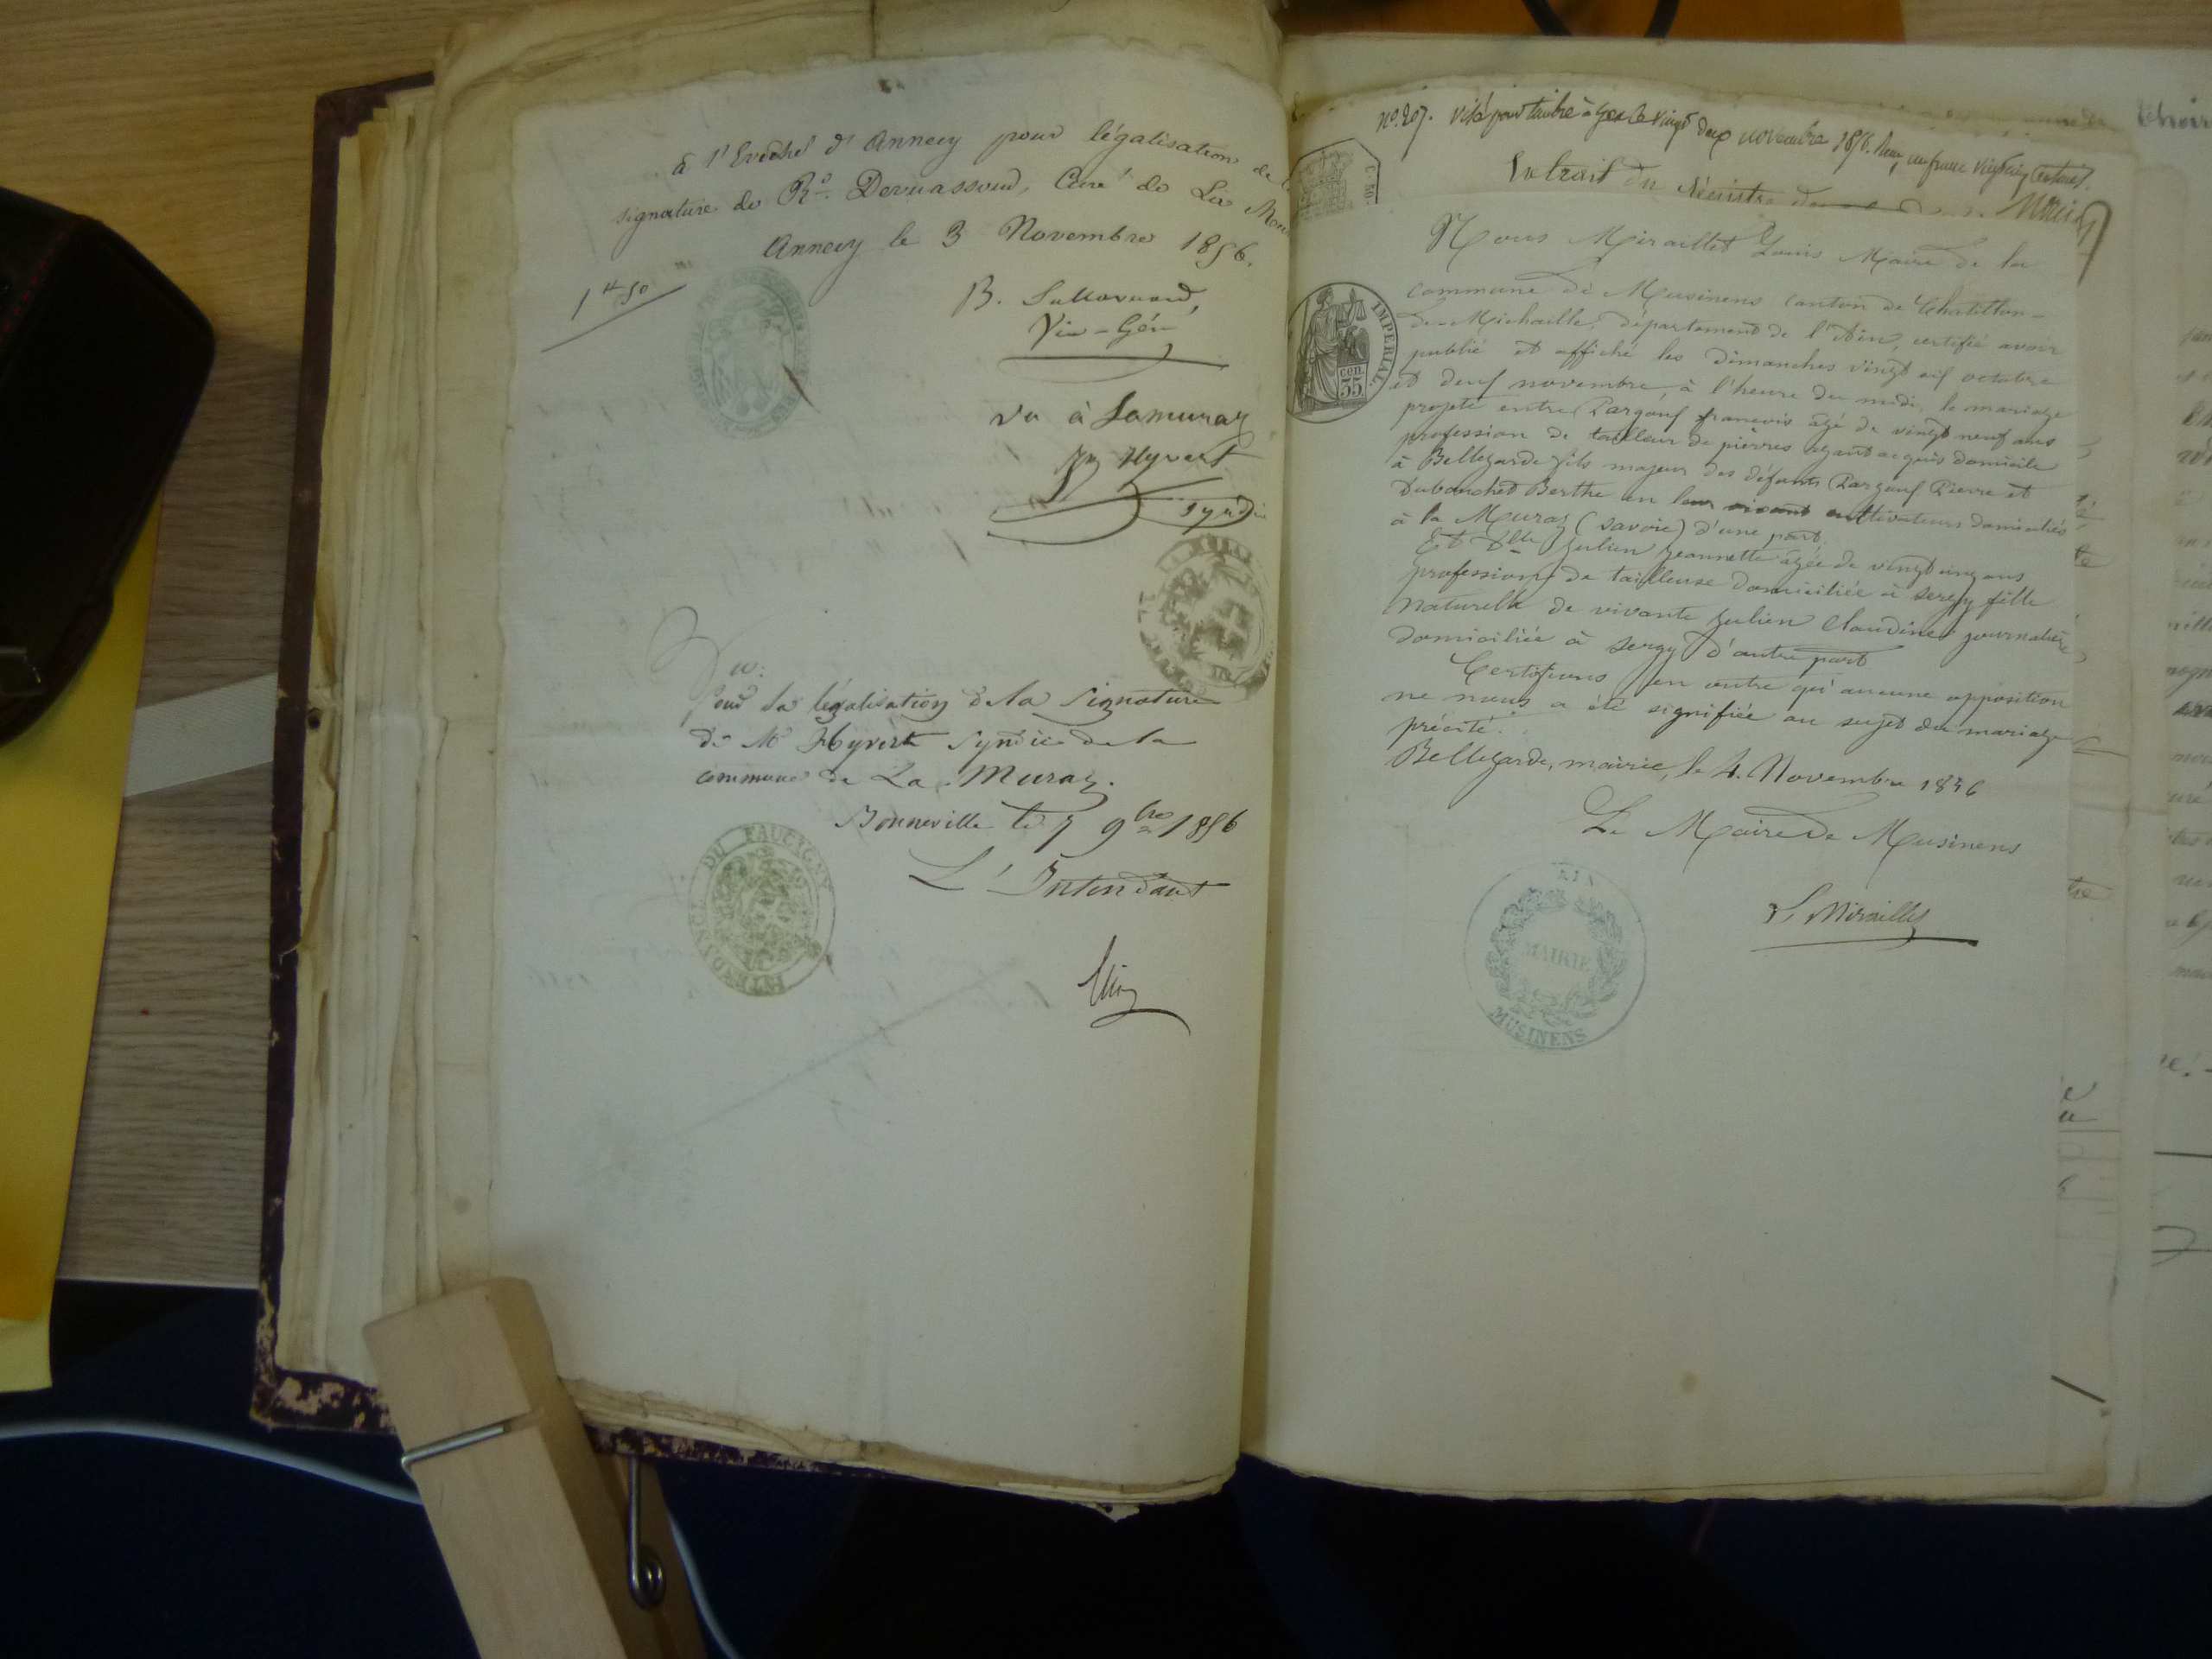 à l'Evêché d'Annecy pour légalisation de la
signature de Rd. Dervassoud, Curé de La Mur
Annecy le 3 Novembre 1856.
B.
Vic-Gén
vu à Lamuraz
Hyvert
syndic
Vu:
Pour la légalisation de la signature
de Mr Hyvert syndic de la
commune de La Muraz.
Bonneville le 7 9bre 1856
L'Intendant
INTENDANCE DU FAUCIGNY
No. 207. Visé pour timbre à Gex le vingt deux novembre 1856. Reçu un franc vingt cinq centimes.
Extrait du Registre
Nous Miraillet Louis Maire de la
commune de Musinens canton de Chatillon-
de-Michaille, département de l'Ain, certifié avoir
publié et affiché les dimanches vingt six octobre
et deux novembre, à l'heure de midi, le mariage
projeté entre Pargouf francois âgé de vingt neuf ans
profession de tailleur de pierres ayant acquis domicile
à Bellegarde fils majeur des défunts Pargouf Pierre et
Dubouchet Berthe en leur vivant cultivateurs domiciliés
à la Muraz (Savoie) d'une part.
Et Dlle Julien Jeannette âgée de vingt cinq ans
profession de tailleuse domiciliée à sergy fille
naturelle de vivante Julien Claudine journalière
domiciliée à sergy d'autre part
Certifions en outre qu'aucune opposition
ne nous a été signifiée au sujet du mariage
précité.
Bellegarde, mairie, le 4. Novembre 1856
Le Maire de Musinens
L. Miraillet
IMPERIAL
35 cen.
AIN
MAIRIE
MUSINENS